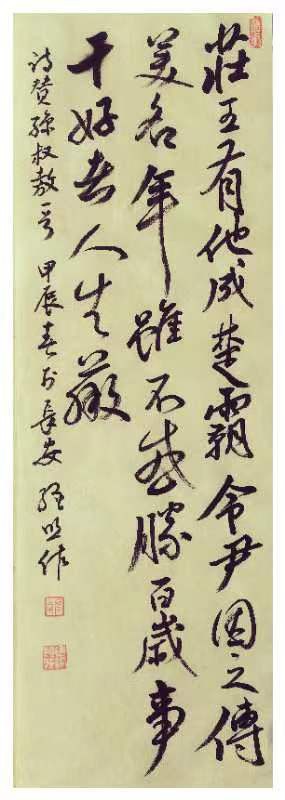 莊王有他成楚霸令尹因之傳
美名年雖不惑勝百歲事
干好人生
詩贊孫叔敖一首 甲辰春於長安 作